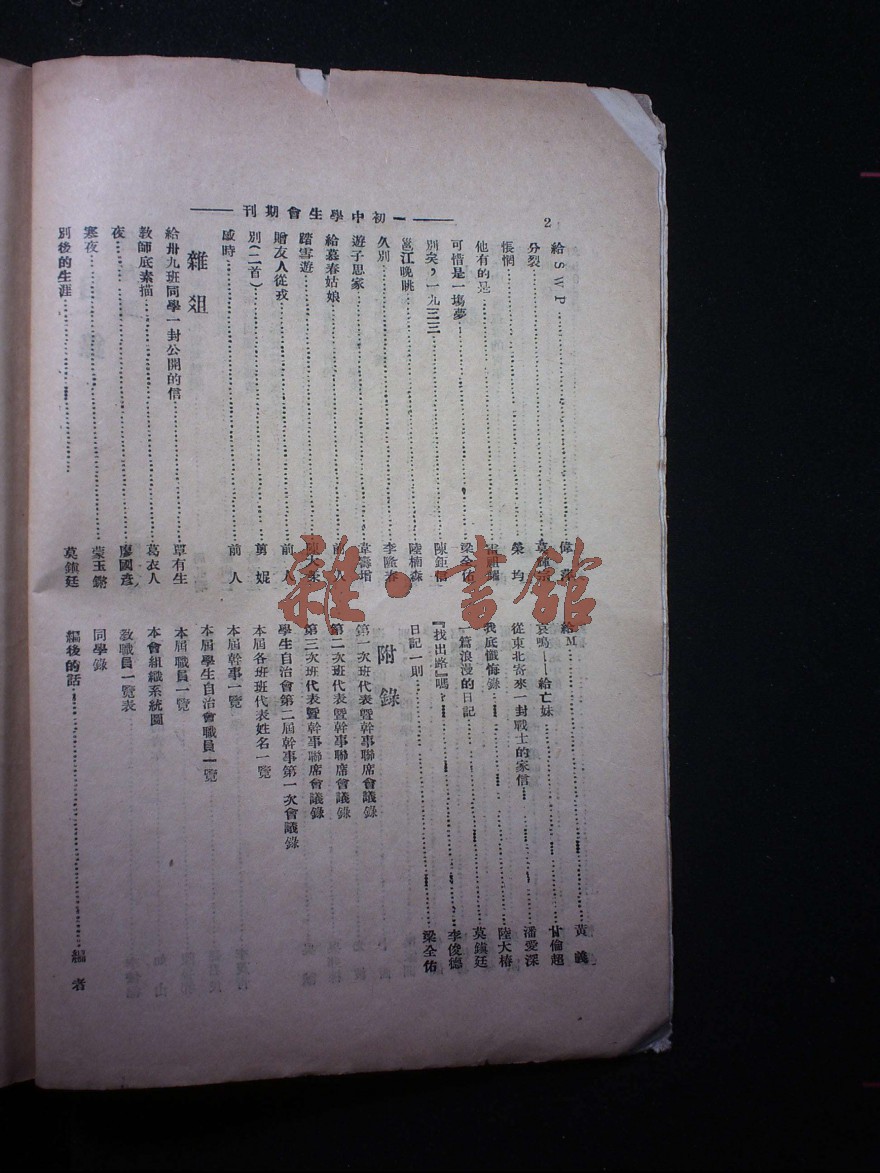 初中學生會期刊
2
給SWP
分裂
悵惘
他有的是
可惜是一場夢……梁全佑
別矣，一九三三……陳鉅信
邕江晚眺……陸楠森
久別……李隆春
遊子思家……韋壽增
給慕春姑娘……前人
踏雪遊……陳大業
贈友人從戎……前人
別(二首)……剪妮
感時……前人
雜俎
給卅九班同學一封公開的信……覃有生
教師底素描……葛衣人
夜……廖國彥
寒夜……蒙玉鏘
別後的生涯……莫鎮廷
給M……黃義
哀鳴——給亡妹……甘倫超
從東北寄來一封戰士的家信……潘愛深
我底懺悔錄……陸大椿
一篇浪漫的日記……莫鎮廷
『找出路』嗎……李俊德
日記一則……梁全佑
附錄
第一次班代表暨幹事聯席會議錄
第二次班代表暨幹事聯席會議錄
第三次班代表暨幹事聯席會議錄
學生自治會第二屆幹事第一次會議錄
本屆各班班代表姓名一覽
本屆幹事一覽
本屆學生自治會職員一覽
本屆職員一覽
本會組織系統圖
教職員一覽表
同學錄
編後的話……編者
雜·書館